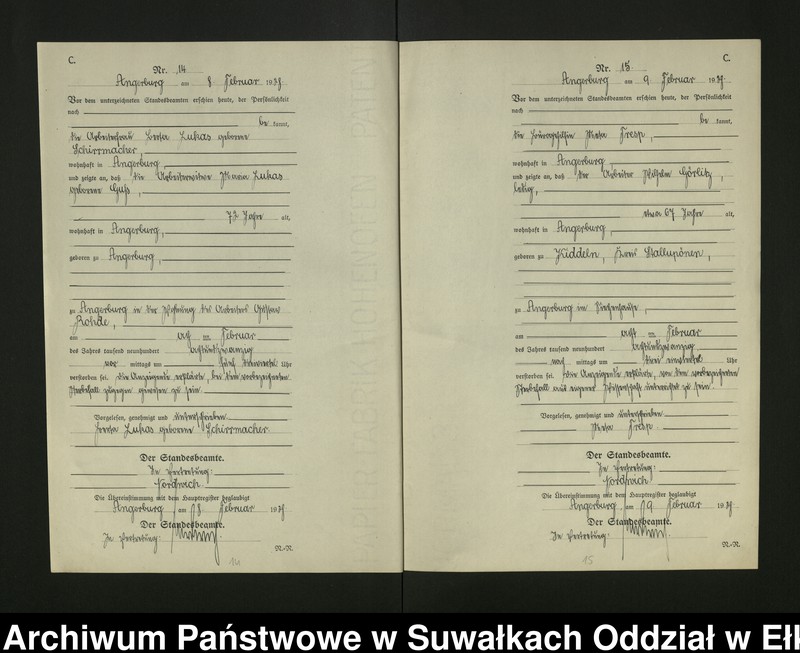 C.
Nr. 14
Angerburg am 8 Februar 19
Vor dem unterzeichneten Standesbeamten erschien heute, der Persönlichkeit
nach
be kannt,
die Arbeiterfrau Berta Lukas geborene
Schirrmacher,
wohnhaft in Angerburg,
und zeigte an, daß die Arbeiterwitwe Lukas
geborene
72 Jahre alt,
wohnhaft in Angerburg,
geboren zu Angerburg,
zu Angerburg in der Wohnung des Arbeiters Gustav
Rohde,
am acht ten Februar
des Jahres tausend neunhundert achtundzwanzig
vor mittags um fünf Uhr
verstorben sei. Die Anzeigende erklärte, bei dem vorbezeichneten
Sterbefall zugegen gewesen zu sein.
Vorgelesen, genehmigt und unterschrieben
Berta Lukas geborene Schirrmacher.
Der Standesbeamte.
In Vertretung:
Die Übereinstimmung mit dem Hauptregister beglaubigt
Angerburg am 8 Februar 19
Der Standesbeamte.
In Vertretung:
N.-N.
14
C.
Nr. 15
Angerburg am 9 Februar 19
Vor dem unterzeichneten Standesbeamten erschien heute, der Persönlichkeit
nach
be kannt,
die Fresp,
wohnhaft in Angerburg,
und zeigte an, daß der Arbeiter Wilhelm Görlitz,
ledig,
etwa 67 Jahre alt,
wohnhaft in Angerburg,
geboren zu Kiddeln, Kreis Stallupönen,
zu Angerburg im Siechenhause,
am acht ten Februar
des Jahres tausend neunhundert achtundzwanzig
vor mittags um Uhr
verstorben sei. Die Anzeigende erklärte, von dem vorbezeichneten
Sterbefall aus eigener Wissenschaft unterrichtet zu sein.
Vorgelesen, genehmigt und unterschrieben
Fresp.
Der Standesbeamte.
In Vertretung:
Die Übereinstimmung mit dem Hauptregister beglaubigt
Angerburg am 9 Februar 19
Der Standesbeamte.
In Vertretung:
N.-N.
15
Archiwum Państwowe w Suwałkach Oddział w Ełk